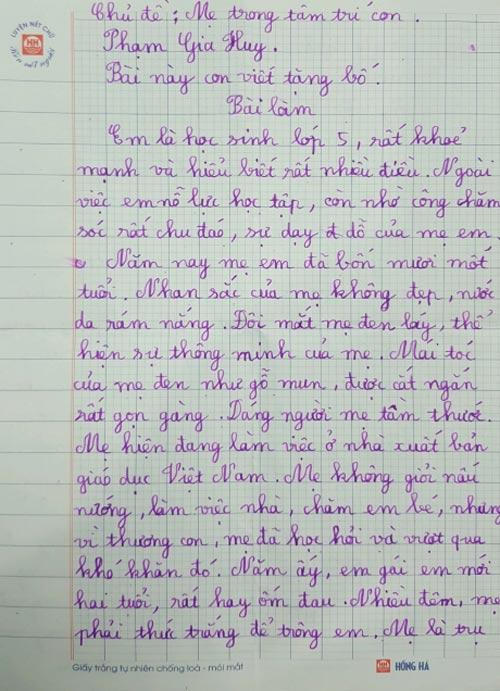 LUYỆN NÉT CHỮ
HH
Rèn nết người
Chủ đề: Mẹ trong tâm trí con.
Phạm Gia Huy.
Bài này con viết tặng bố.
Bài làm
Em là học sinh lớp 5, rất khoẻ
mạnh và hiểu biết rất nhiều điều. Ngoài
việc em nỗ lực học tập, còn nhờ công chăm
sóc rất chu đáo, sự dạy dỗ của mẹ em.
Năm nay mẹ em đã bốn mươi mốt
tuổi. Nhan sắc của mẹ không đẹp, nước
da rám nắng. Đôi mắt mẹ đen láy, thể
hiện sự thông minh của mẹ. Mái tóc
của mẹ đen như gỗ mun, được cắt ngắn
rất gọn gàng. Dáng người mẹ tầm thước.
Mẹ hiện đang làm việc ở nhà xuất bản
giáo dục Việt Nam. Mẹ không giỏi nấu
nướng, làm việc nhà, chăm em bé, nhưng
vì thương con, mẹ đã học hỏi và vượt qua
khó khăn đó. Năm ấy, em gái em mới
hai tuổi, rất hay ốm đau. Nhiều đêm, mẹ
phải thức trắng để trông em. Mẹ là trụ
Giấy trắng tự nhiên chống loá - mỏi mắt
HH HỒNG HÀ